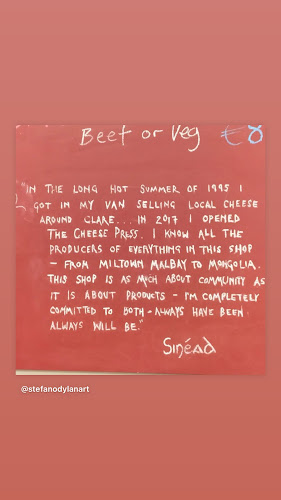 Beef or Veg €8
"IN THE LONG HOT SUMMER OF 1995 I
GOT IN MY VAN SELLING LOCAL CHEESE
AROUND CLARE... IN 2017 I OPENED
THE CHEESE PRESS. I KNOW ALL THE
PRODUCERS OF EVERYTHING IN THIS SHOP
- FROM MILTOWN MALBAY TO MONGOLIA.
THIS SHOP IS AS MUCH ABOUT COMMUNITY AS
IT IS ABOUT PRODUCTS - I'M COMPLETELY
COMMITTED TO BOTH - ALWAYS HAVE BEEN
ALWAYS WILL BE."
Sinéad
@stefanodylanart